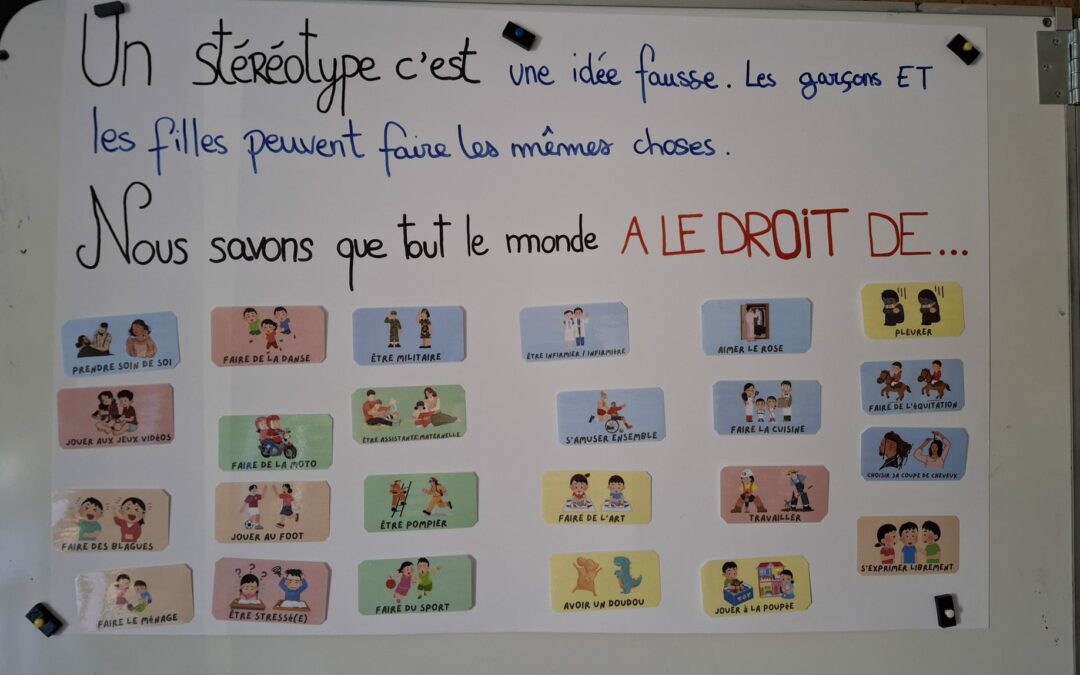 Un stéréotype c'est une idée fausse. Les garçons ET
les filles peuvent faire les mêmes choses.
Nous savons que tout le monde A LE DROIT DE...
PRENDRE SOIN DE SOI
FAIRE DE LA DANSE
ÊTRE MILITAIRE
ÊTRE INFIRMIER / INFIRMIÈRE
AIMER LE ROSE
PLEURER
JOUER AUX JEUX VIDÉOS
FAIRE DE LA MOTO
ÊTRE ASSISTANTE MATERNELLE
S'AMUSER ENSEMBLE
FAIRE LA CUISINE
FAIRE DE L'ÉQUITATION
CHOISIR SA COUPE DE CHEVEUX
FAIRE DES BLAGUES
JOUER AU FOOT
ÊTRE POMPIER
FAIRE DE L'ART
TRAVAILLER
S'EXPRIMER LIBREMENT
FAIRE LE MÉNAGE
ÊTRE STRESSÉ(E)
FAIRE DU SPORT
AVOIR UN DOUDOU
JOUER À LA POUPÉE